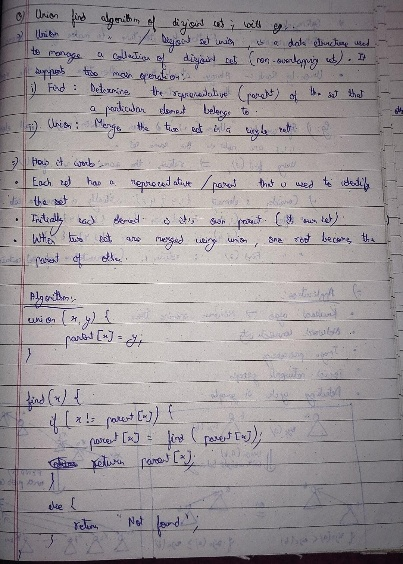 Q) Union find algorithm of disjoint set; with eg:-
Union / Disjoint set union, is a data structure used
to manage a collection of disjoint set (non-overlapping set). It
supports two main operation:-
i) Find: Determine the representative (parent) of the set that
a particular element belongs to.
ii) Union: Merge the two set in a single set.
How it works:-
• Each set has a representative / parent that is used to identify
the set
• Initially each element is it's own parent (its own set).
• When two set are merged using union, one root become the
parent of other.
Algorithm:-
union (x, y) {
parent [x] = y;
}
find (x) {
if [ x != parent [x] ) {
parent [x] = find ( parent [x]);
return parent [x];
}
else {
return "Not found";
}